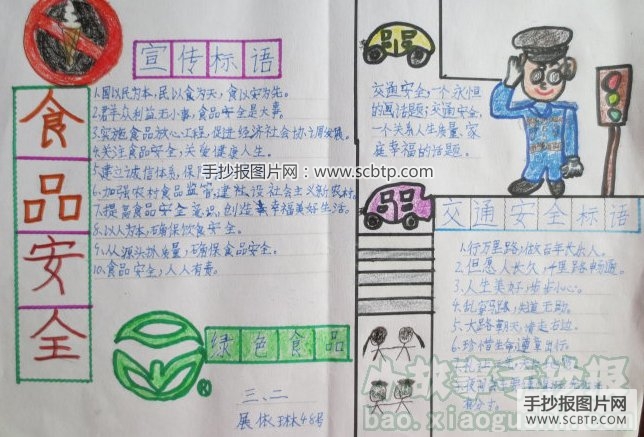 食品安全
宣传标语
1.国以民为本,民以食为天,食以安为先。
2.君羊众利益无小事,食品安全是大事。
3.实施食品放心工程,促进经济社会协调发展。
4.关注食品安全,关爱健康人生。
5.建立诚信体系,保
6.加强农村食品监管,建设社会主义新农村。
7.提高食品安全意识,创造幸福美好生活。
8.以人为本,确保饮食安全。
9.从源头抓质量,确保食品安全。
10.食品安全,人人有责。
绿色食品
三、二
展依琳48号
手抄报图片网:www.scbtp.com
交通安全,一个永恒
的话题;交通安全,
一个关系人生质量、家
庭幸福的话题。
交通安全标语
1.行万里路,做百年长乐人。
2.但愿人长久,千里路畅通。
3.人生美好,步步小心。
5.大路朝天,靠走右边。
6.珍惜生命遵章出行。
手抄报图片网
WWW.SCBTP.COM